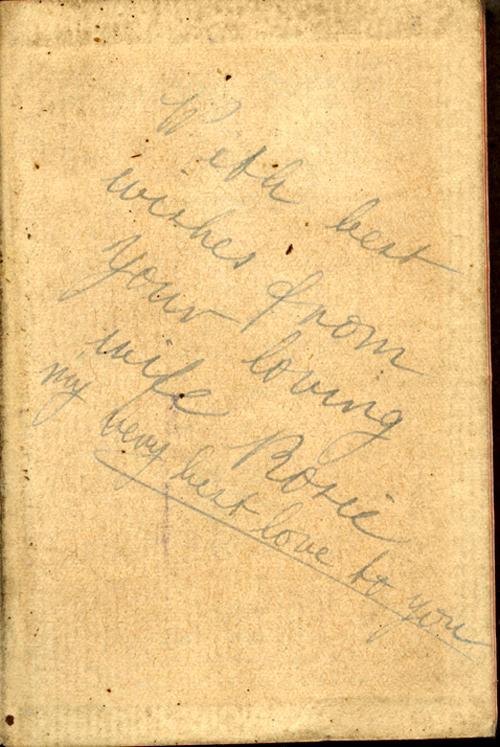 With best
wishes from
your loving
wife Rosie
my very best love to you